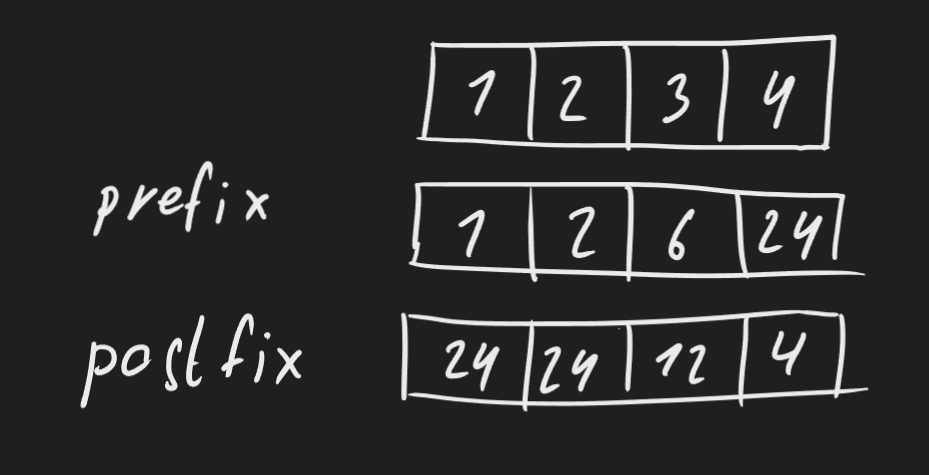 1 2 3 4
prefix 1 2 6 24
postfix 24 24 12 4